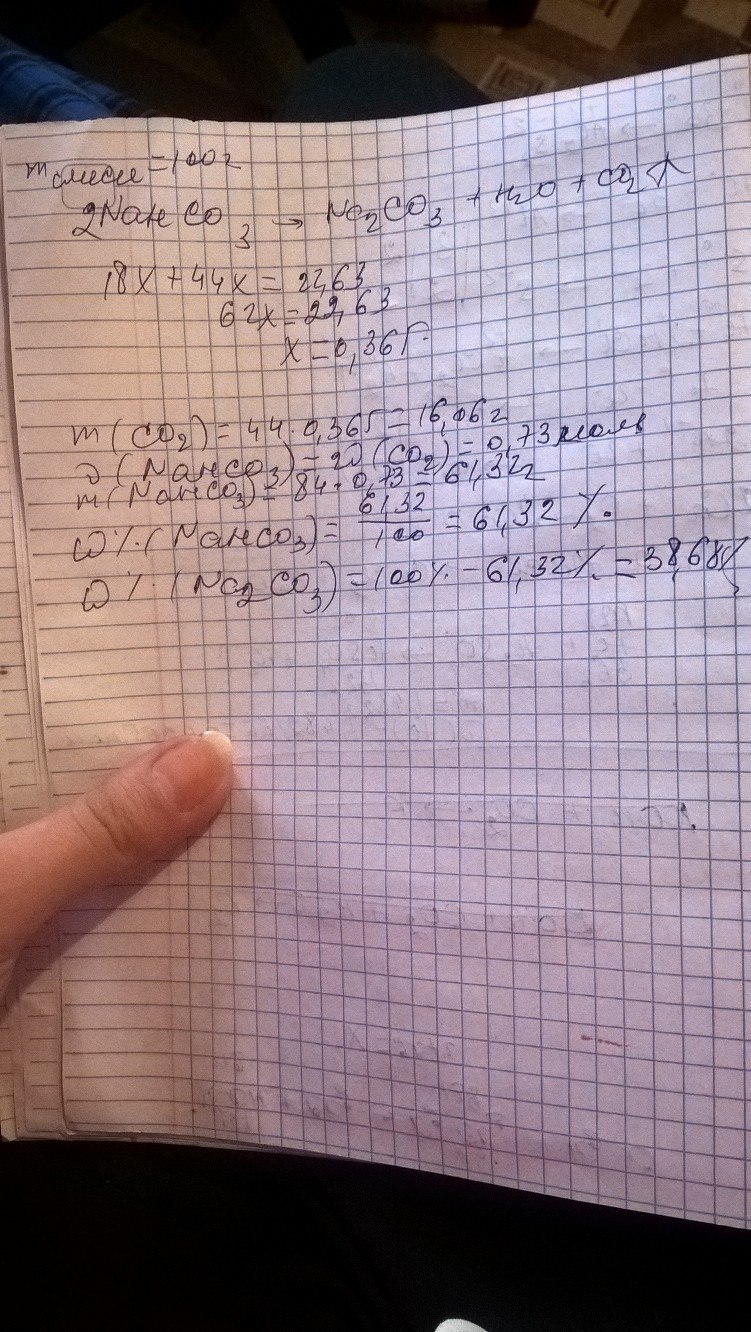 m смеси = 100г
2NaHCO3 → Na2CO3 + H2O + CO2↑
18x + 44x = 22,63
62x = 22,63
x = 0,365.
m(CO2) = 44 · 0,365 = 16,06г
ν(NaHCO3) = 2ν(CO2) = 0,73 моль
m(NaHCO3) = 84 · 0,73 = 61,32г
ω%(NaHCO3) = 61,32/100 = 61,32%.
ω%(Na2CO3) = 100% - 61,32% = 38,68%